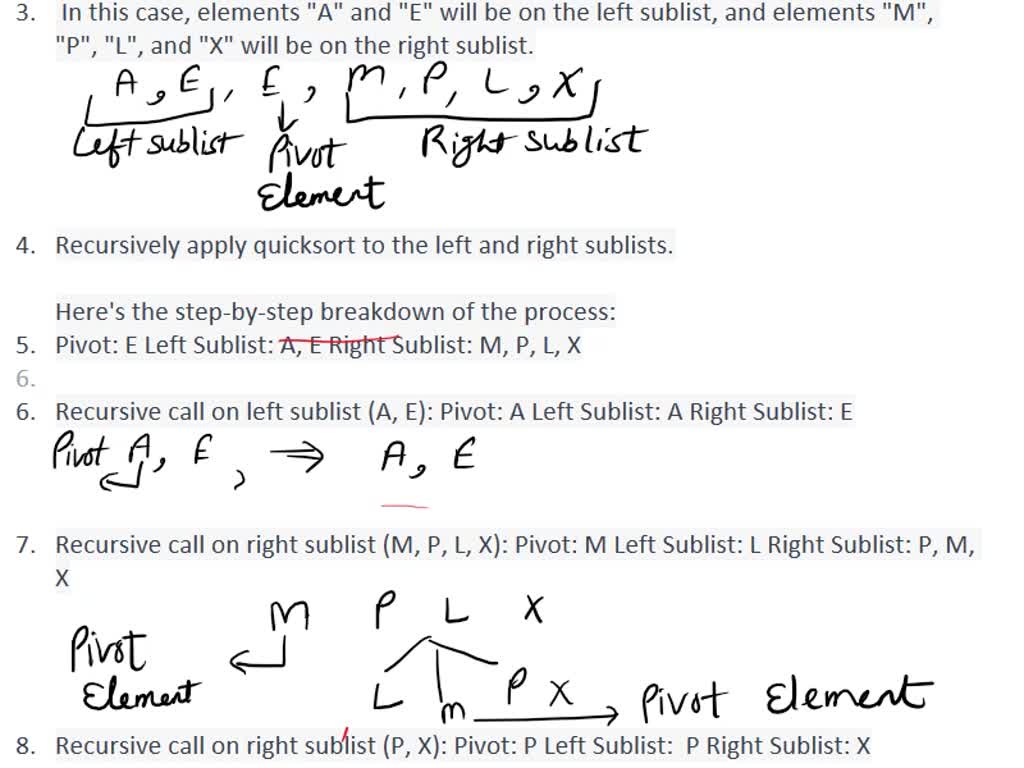 3. In this case, elements "A" and "E" will be on the left sublist, and elements "M",
"P", "L", and "X" will be on the right sublist.
A, E, E, M, P, L, X
Left sublist Pivot Right sublist
Element
4. Recursively apply quicksort to the left and right sublists.
Here's the step-by-step breakdown of the process:
5. Pivot: E Left Sublist: A, E Right Sublist: M, P, L, X
6.
6. Recursive call on left sublist (A, E): Pivot: A Left Sublist: A Right Sublist: E
Pivot A, E, ⇒ A, E
7. Recursive call on right sublist (M, P, L, X): Pivot: M Left Sublist: L Right Sublist: P, M,
X
M P L X
Pivot
Element L m P X → Pivot Element
8. Recursive call on right sublist (P, X): Pivot: P Left Sublist: P Right Sublist: X